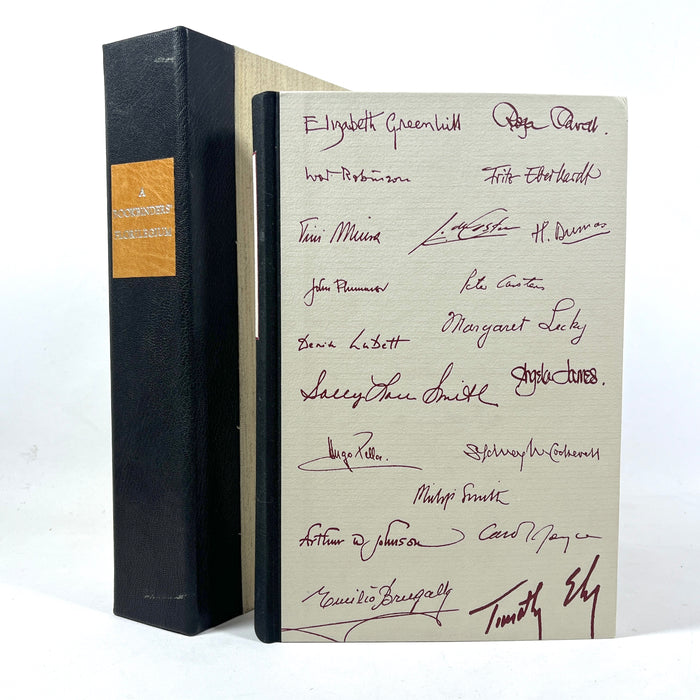 A
BOOKBINDERS'
FLORILEGIUM
Elizabeth Greenhill
Ivor Robinson Fritz Eberhardt
Tini Miura H. Dumas
John Plummer Peter Carstens
Margaret Lecky
Denise Lubett
Angela James.
Sally Lou Smith
Hugo Peller Sydney M. Cockerell
Philip Smith
Arthur W Johnson Carol Joyce
Emilio Brugalla Timothy Ely